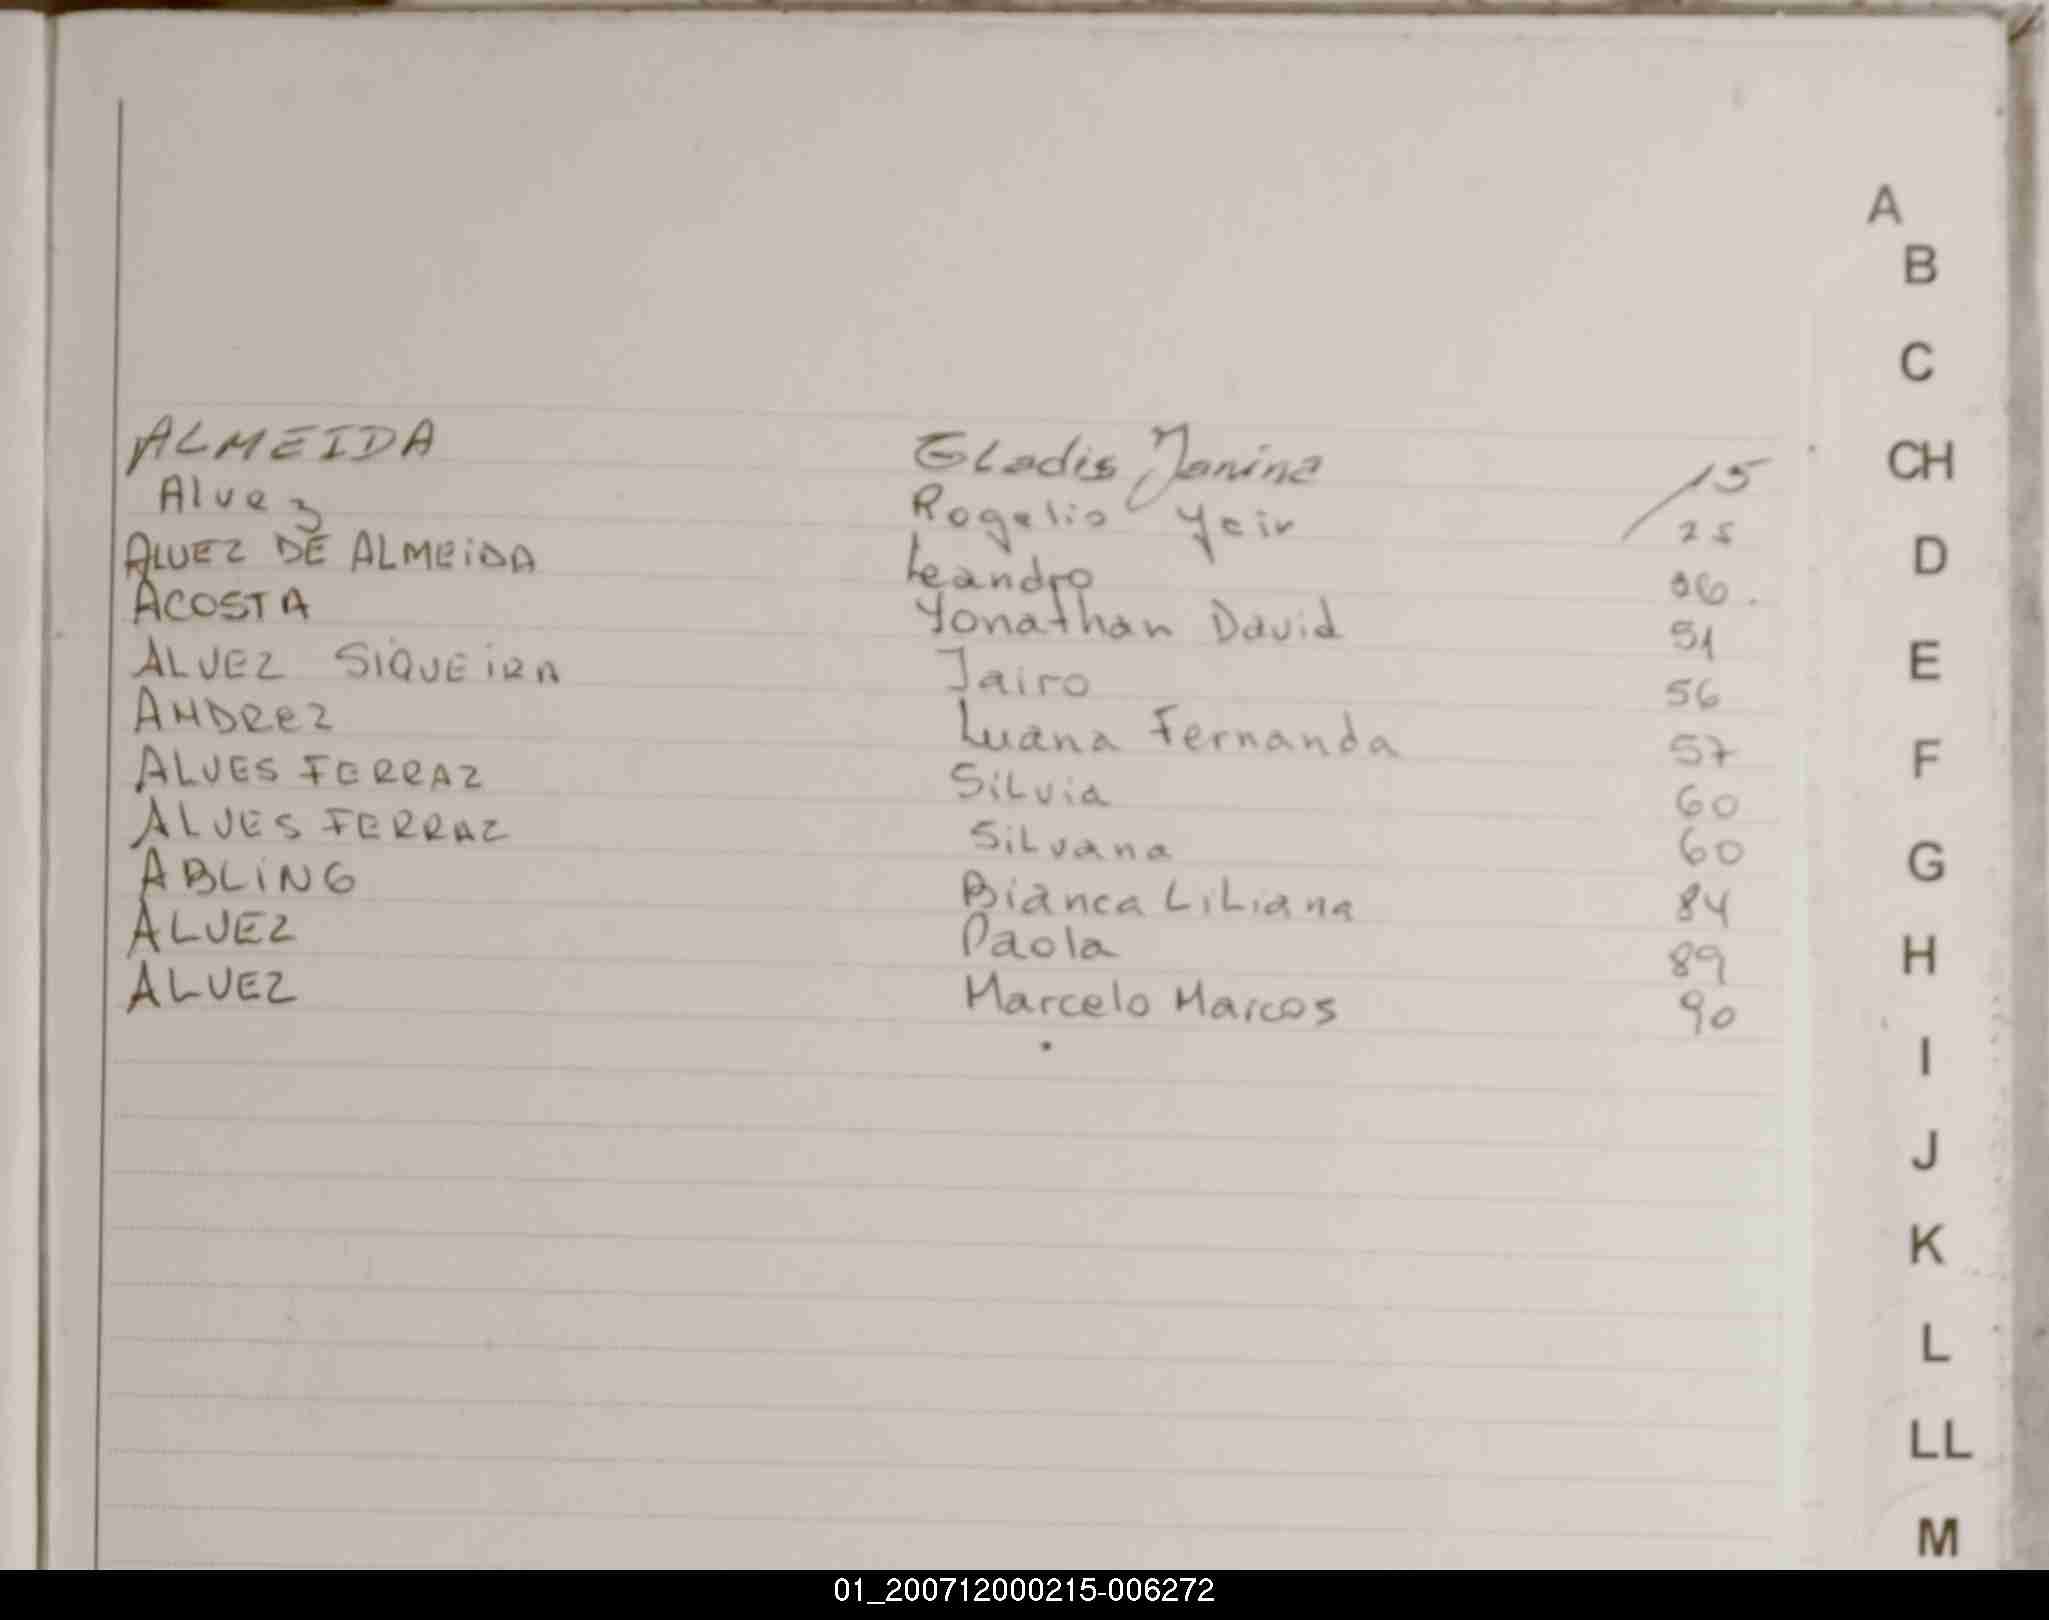 ALMEIDA Gladis Janina 15
Alvez Rogelio Yeir 25
ALVEZ DE ALMEIDA Leandro 36
ACOSTA Yonathan David 51
ALVEZ SIQUEIRA Jairo 56
ANDREZ Luana Fernanda 57
ALVES FERRAZ Silvia 60
ALVES FERRAZ Silvana 60
ABLING Bianca Liliana 84
ALVEZ Paola 89
ALVEZ Marcelo Marcos 90
A
B
C
CH
D
E
F
G
H
I
J
K
L
LL
M
01_200712000215-006272